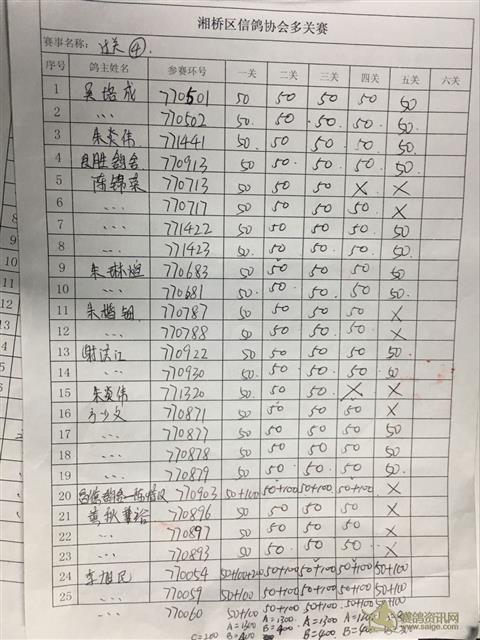 湘桥区信鸽协会多关赛
赛事名称: 过关④.
序号 鸽主姓名 参赛环号 一关 二关 三关 四关 五关 六关
1 770501 50 50 50 50 50
2 770502 50 50 50 50 50
3 朱炎伟 771441 50 50 50 50 50
4 良胜鸽舍 770913 50 50 50 50 50
5 陈锦荣 770713 50 50 50 X X
6 770717 50 50 50 50 X
7 771422 50 50 50 50 50
8 771423 50 50 50 50 50
9 770683 50 50 50 50 50
10 770681 50 50 50 50 50
11 770787 50 50 50 50 X
12 770788 50 50 50 50 X
13 谢汉江 770922 50 50 50 50 50
14 770930 50 50 50 50 50
15 朱炎伟 771320 50 50 50 X X
16 方少文 770871 50 50 50 50 X
17 770877 50 50 50 50 50
18 770878 50 50 50 50 50
19 770879 50 50 50 50 50
20 770903 50+100 50+100 50+100 50+100 X
21 770896 50 50 50 50 X
22 770897 50 50 50 50 X
23 770893 50 50 50 50 X
24 李旭民 770054 50+100+200 50+100 50+100 50+100 50+100
25 770059 50+100 50+100 50+100 50+100 50+100
770060 50+100 50+100 50+100 50+100 50+100
赛鸽资讯网
www.saige.com